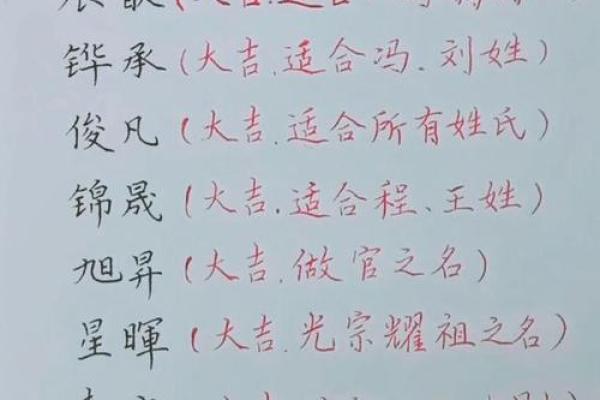 铧承(大吉.适合冯、刘姓)
俊凡(大吉.适合所有姓氏)
锦晟(大吉.适合程、王姓)
旭昇(大吉.做官之名)
星暉(大吉.光宗耀祖之名)